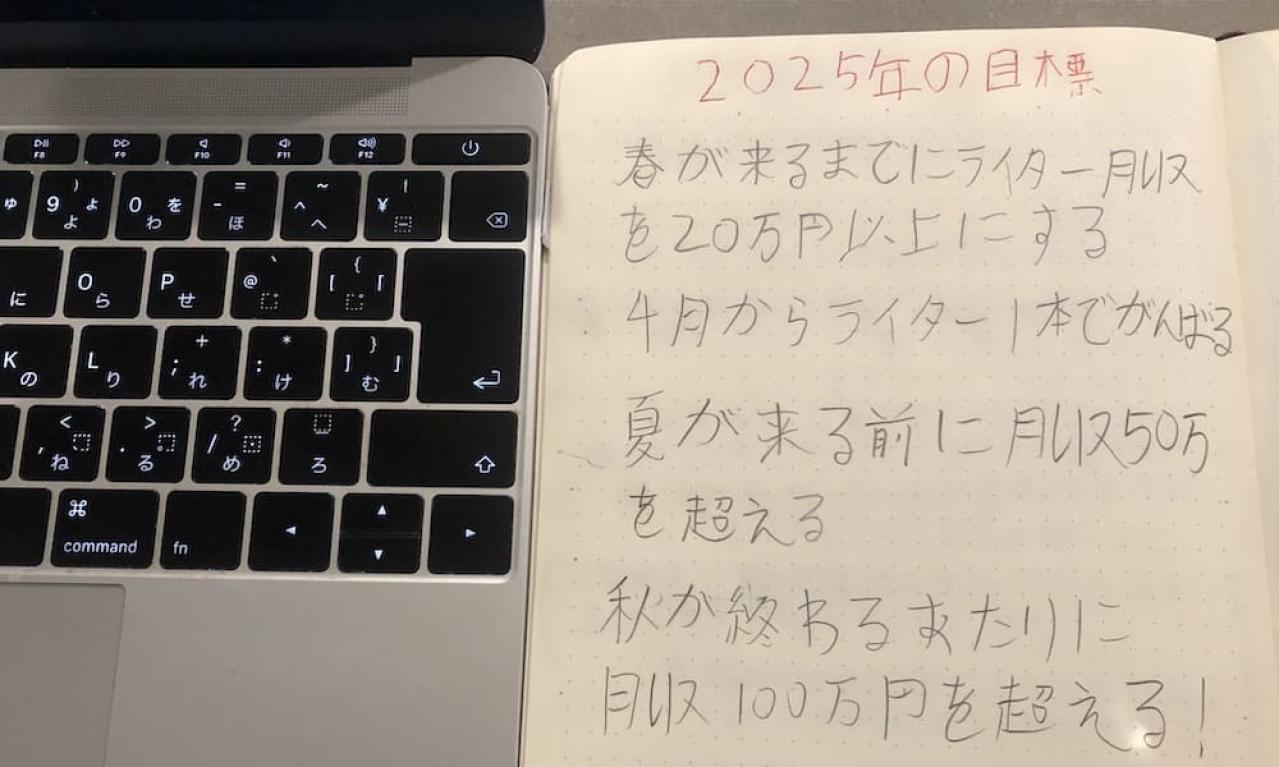 F8 F9 F10 F11 F12
ゅ 9 ) よ ょ 0 を わ - = ほ ^ ~ へ ¥ ! ー
に O ら P せ @ ` [ { 「
K の L り ; + れ : * け ] } 」 む
, < ね . > る / ? め ろ
⌘
command fn
2025年の目標
春が来るまでにライター月収
を20万円以上にする
4月からライター1本でがんばる
夏が来る前に月収50万
を超える
秋が終わるあたりに
月収100万円を超える!